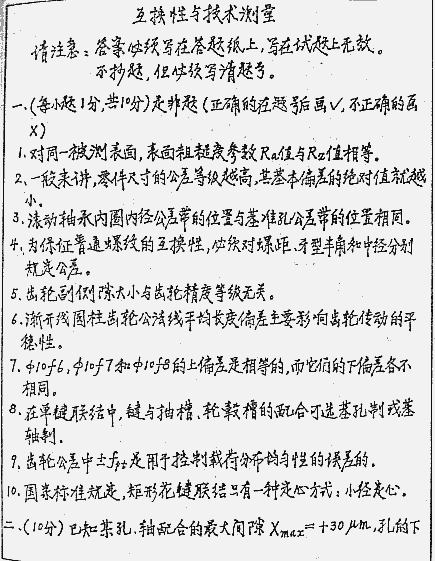 互换性与技术测量
请注意：答案必须写在答题纸上，写在试题上无效。
不抄题，但必须写清题号。
一、(每小题1分，共10分)是非题(正确的在题号后画√，不正确的画
X)
1.对同一被测表面，表面粗糙度参数Ra值与Rz值相等。
2、一般来讲，零件尺寸的公差等级越高，其基本偏差的绝对值就越
小。
3、滚动轴承内圈内径公差带的位置与基准孔公差带的位置相同。
4、为保证普通螺纹的互换性，必须对螺距、牙型半角和中径分别
规定公差。
5、齿轮副侧隙大小与齿轮精度等级无关。
6、渐开线圆柱齿轮公法线平均长度偏差主要影响齿轮传动的平
稳性。
7、φ10f6，φ10f7和φ10f8的上偏差是相等的，而它们的下偏差各不
相同。
8、在单键联结中，键与轴槽、轮毂槽的配合可选基孔制或基
轴制。
9、齿轮公差中±fpt是用于控制载荷分布均匀性的误差的。
10、国家标准规定，矩形花键联结只有一种定心方式：小径定心。
二、(10分)已知某孔、轴配合的最大间隙Xmax=+30μm，孔的下